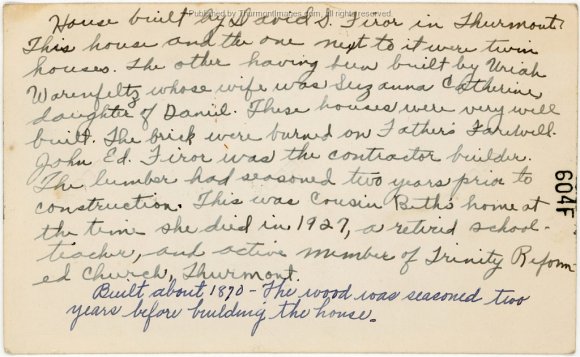 Published by Thurmontimages.com. All rights reserved
House built by David S. Firor in Thurmont.
This house and the one next to it were twin
houses. The other having been built by Uriah
Warenfeltz whose wife was Suzanna Catherine
daughter of Daniel. These houses were very well
built. The brick were burned on Father's Farwell.
John Ed. Firor was the contractor builder.
The lumber had seasoned two years prior to
construction. This was Cousin Beth's home at
the time she died in 1927, a retired school-
teacher, and active member of Trinity Reform-
ed Church, Thurmont.
Built about 1890 - The wood was seasoned two
years before building the house.
604F